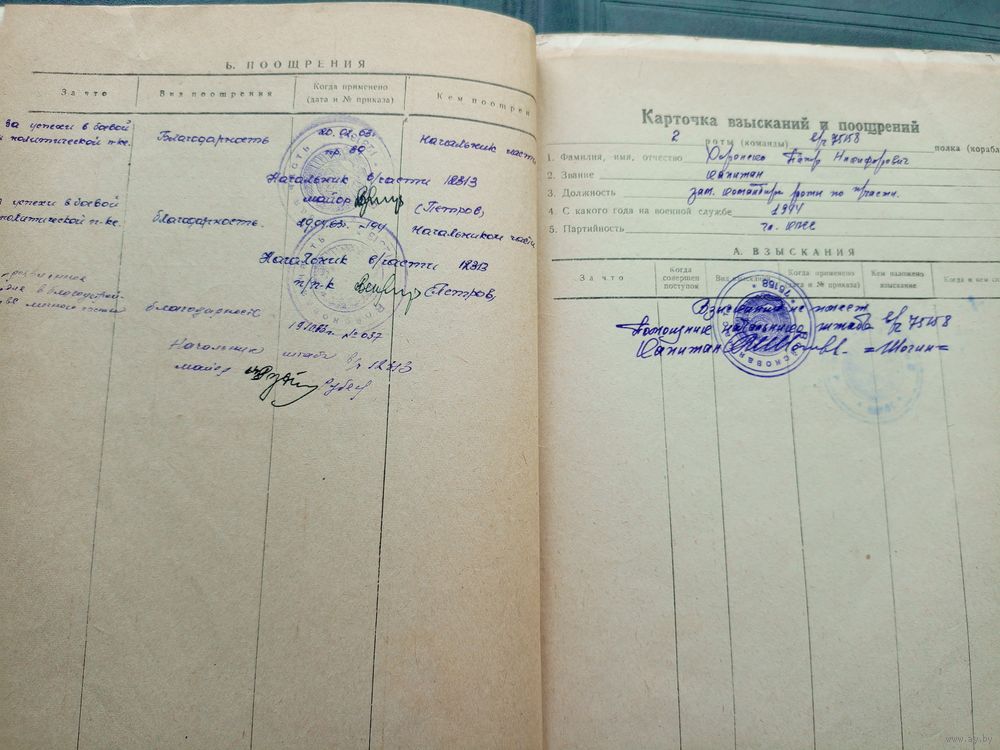 Б. ПООЩРЕНИЯ
За что
Вид поощрения
Когда применено
(дата и № приказа)
Кем поощрен
за успехи в боевой
и политической п-ке.
Благодарность
пр. 89
Начальник части
Начальник в/части 12313
майор (Петров)
успехи в боевой
политической п-ке.
благодарность.
Начальником части
Начальник в/части 12313
п/п-к (Петров)
благодарность
№ 037
Начальник штаба в/ч 12313
майор
Карточка взысканий и поощрений
2 роты (команды) в/ч 75158 полка (кораб
1. Фамилия, имя, отчество Петр Никифорович
2. Звание капитан
3. Должность зам. командира роты по
4. С какого года на военной службе 1944
5. Партийность чл. КПСС
А. ВЗЫСКАНИЯ
За что
Когда
совершен
поступок
Вид взыскания
Когда применено
(дата и № приказа)
Кем наложено
взыскание
Когда и кем сн
Взысканий не имеет
Помощник начальника штаба в/ч 75158
Капитан =Шогин=
* 75158 *
www.ay.by